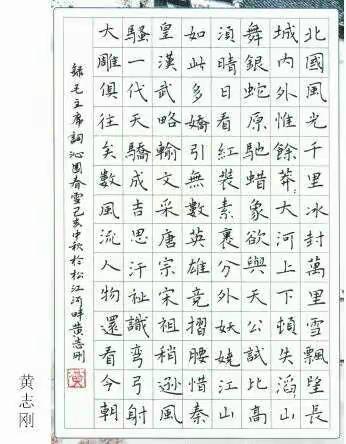 北國風光千里冰封萬里雪飄望長
城內外惟餘莽〻大河上下頓失滔〻山
舞銀蛇原馳蜡象欲與天公試比高
須晴日看紅裝素裹分外妖嬈江山
如此多嬌引無數英雄競摺腰惜秦
皇漢武略輸文采唐宗宋祖稍遜風
騷一代天驕成吉思汗祉識彎弓射
大雕俱往矣數風流人物還看今朝
録毛主席詞沁園春雪己亥中秋於松江河畔黄志剛
黄志刚